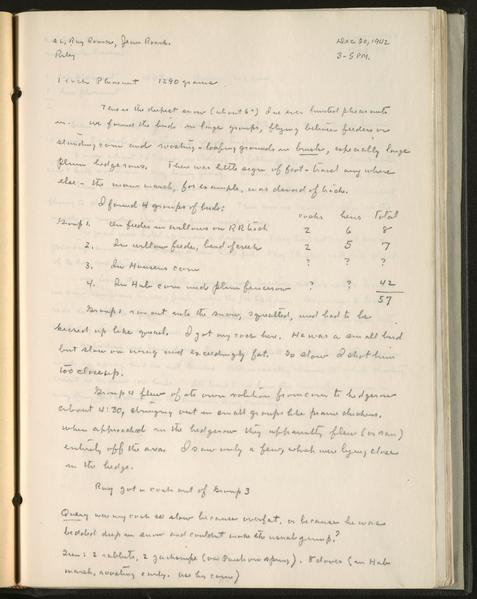 AL, Ray Roark, Jean Roark. Dec 20, 1942
Riley 3-5 PM.
1 cock Pheasant 1290 grams
This is the deepest snow (about 6") I've ever hunted pheasants
in. We found the birds in large groups, flying between feeders or
standing corn and roosting & loafing grounds in brush, especially large
plum hedgerows. There was little sign of foot-travel anywhere
else - the main marsh, for example, was devoid of birds.
I found 4 groups of birds: cocks hens total
Group 1. In feeder in willows on RR ditch 2 6 8
2. In willow feeder, bend of creek 2 5 7
3. In Hansens corn ? ? ?
4. In Hub corn and plum fencerow ? ? 42
57
Group 1 ran out into the snow, squatted, and had to be
kicked up like quail. I got my cock here. He was a small bird
but slow on wing and exceedingly fat. So slow I shot him
too close up.
Group 4 flew of its own volition from corn to hedgerow
about 4:30, stringing out in small groups like prairie chickens.
When approached in the hedgerow they apparently flew (or ran)
entirely off the area. I saw only a few, which were lying close
in the hedge.
Ray got a cock out of Group 3
Query was my cock so slow because overfat, or because he was
bedded deep in snow and couldnt make the usual jump?
Seen: 2 rabbits, 2 jacksnipe (on spring). 8 doves (in Hub
marsh, roosting early. Use his corn)